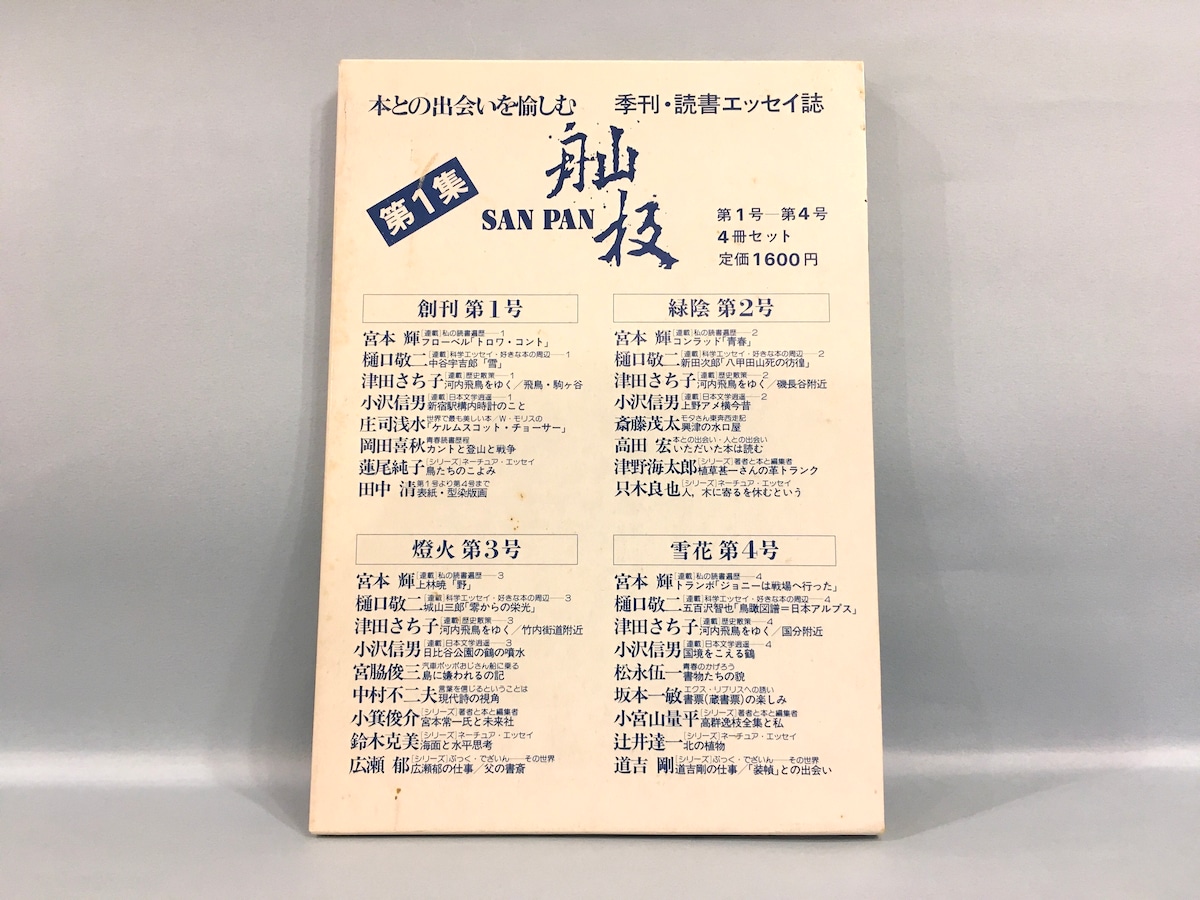 本との出会いを愉しむ 季刊・読書エッセイ誌
舢板
第1集
SAN PAN
第1号―第4号
4冊セット
定価1600円
創刊 第1号
宮本 輝 [連載]私の読書遍歴――1
フローベル「トロワ・コント」
樋口敬二 [連載]科学エッセイ・好きな本の周辺――1
中谷宇吉郎「雪」
津田さち子 [連載]歴史散策――1
河内飛鳥をゆく/飛鳥・駒ヶ谷
小沢信男 [連載]日本文学逍遥――1
新宿駅構内時計のこと
庄司浅水 世界で最も美しい本/W・モリスの
「ケルムスコット・チョーサー」
岡田喜秋 青春読書歴程
カントと登山と戦争
蓮尾純子 [シリーズ]ネーチュア・エッセイ
鳥たちのこよみ
田中 清 第1号より第4号まで
表紙・型染版画
緑陰 第2号
宮本 輝 [連載]私の読書遍歴――2
コンラッド「青春」
樋口敬二 [連載]科学エッセイ・好きな本の周辺――2
新田次郎「八甲田山死の彷徨」
津田さち子 [連載]歴史散策――2
河内飛鳥をゆく/磯長谷付近
小沢信男 [連載]日本文学逍遥――2
上野アメ横今昔
斎藤茂太 モタさん東奔西走記
興津の水口屋
高田 宏 本との出会い・人との出会い
いただいた本は読む
津野海太郎 [シリーズ]著者と本と編集者
植草甚一さんの革トランク
只木良也 [シリーズ]ネーチュア・エッセイ
人，木に寄るを休むという
燈火 第3号
宮本 輝 [連載]私の読書遍歴――3
上林暁「野」
樋口敬二 [連載]科学エッセイ・好きな本の周辺――3
城山三郎「零からの栄光」
津田さち子 [連載]歴史散策――3
河内飛鳥をゆく/竹内街道附近
小沢信男 [連載]日本文学逍遥――3
日比谷公園の鶴の噴水
宮脇俊三 汽車ポッポおじさん船に乗る
島に嫌われるの記
中村不二夫 言葉を信じるということは
現代詩の視角
小箕俊介 [シリーズ]著者と本と編集者
宮本常一氏と未来社
鈴木克美 [シリーズ]ネーチュア・エッセイ
海面と水平思考
広瀬 郁 [シリーズ]ぶっく・でざいん――その世界
広瀬郁の仕事/父の書斎
雪花 第4号
宮本 輝 [連載]私の読書遍歴――4
トランボ「ジョニーは戦場へ行った」
樋口敬二 [連載]科学エッセイ・好きな本の周辺――4
五百沢智也「鳥瞰図譜＝日本アルプス」
津田さち子 [連載]歴史散策――4
河内飛鳥をゆく/国分附近
小沢信男 [連載]日本文学逍遥――4
国境をこえる鶴
松永伍一 青春のかげろう
書物たちの貌
坂本一敏 エクス・リブリスへの誘い
書票(蔵書票)の楽しみ
小宮山量平 [シリーズ]著者と本と編集者
高群逸枝全集と私
辻井達一 [シリーズ]ネーチュア・エッセイ
北の植物
道吉 剛 [シリーズ]ぶっく・でざいん――その世界
道吉剛の仕事/「装幀」との出会い